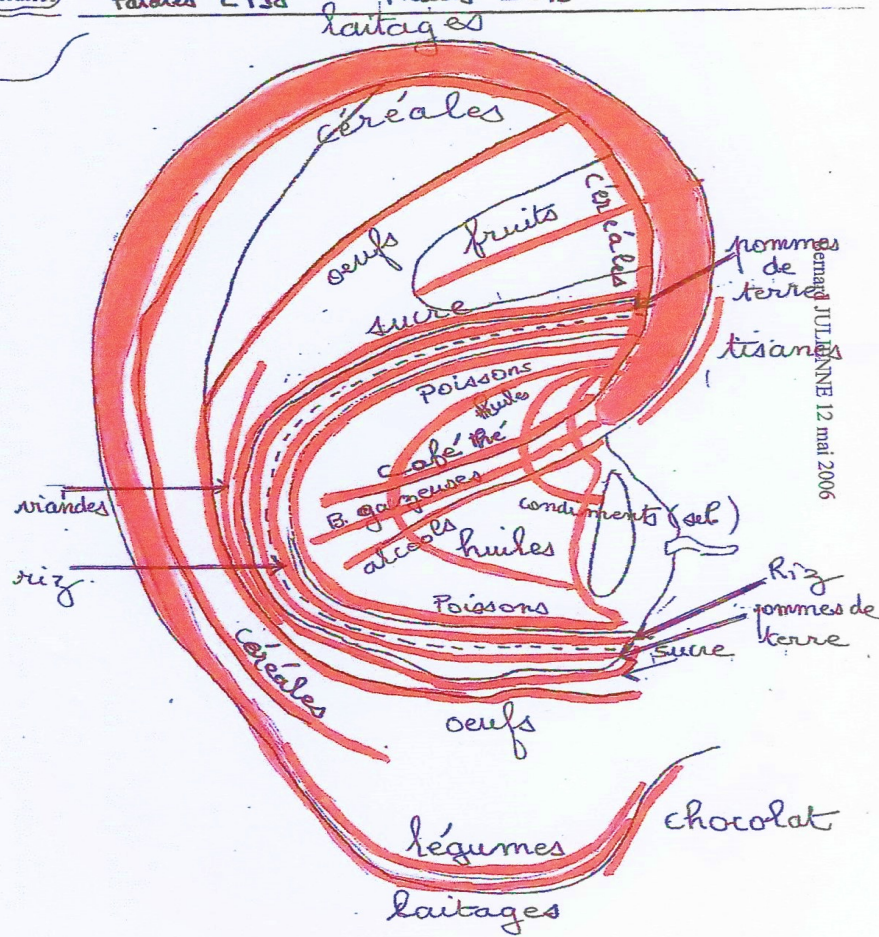 laitages
céréales
céréales
fruits
oeufs
pommes
de
terre
sucre
tisanes
Bernard JULIENNE 12 mai 2006
Poissons
huiles
café thé
B. gazeuses
alcools
condiments (sel)
viandes
huiles
riz.
Riz
Poissons
pommes de
terre
sucre
céréales
oeufs
chocolat
légumes
laitages